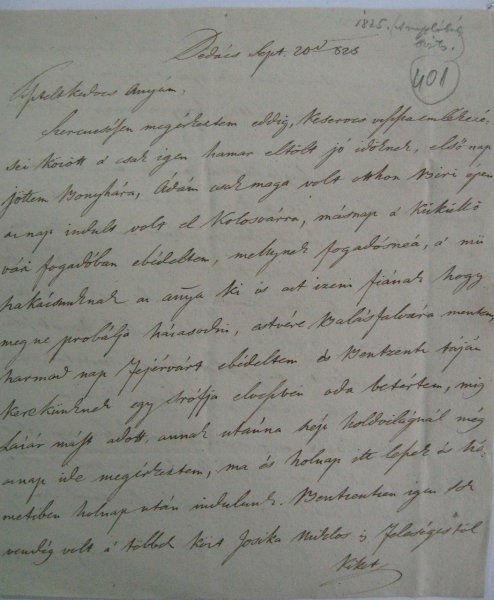 1825.
401
Dédács Sept. 20d 825
Tiszteltkedves Anyám,
Szerencsésen megérkeztem eddig, keserves visszaemlékezé-
sei között a csak igen hamar eltölt jó időknek, első nap
jöttem Bonyhára, Ádám csak maga volt otthon Biri épen
aznap indult volt el Kolosvárra, másnap a Küküllő
vári fogadóban ebédeltem, mellynek fogadósnéa, a mü
szakácsunknak az annya ki is azt izeni fiának hogy
meg ne probálja házasodni, astvére Balásfalvára mentem,
harmad nap Fejérvárt ebédeltem és Bentzentz táján
kerekünknek egy sróffja elveszvén oda betértem, mig
Lázár mást adott, annak utánna szép holdvilágnál még
aznap ide megérkeztem, ma és holnap itt leszek és
holnap után indulunk. Bentzentzen igen sok
vendég volt a többek közt Josika Miklos is Feleségestől